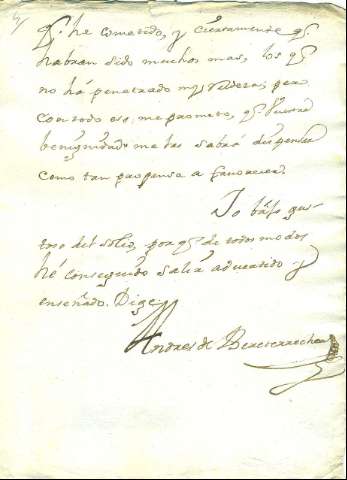 q.e he cometido, y ciertamente q.e
habran sido muchos mas, los q.e
no há penetrado mi rudeza; pero
con todo eso, me prometo, q.e vuestra
benignidad me las sabrá dispensar
como tan propensa a favorecer.
Yo baxo gus-
toso del solio, por q.e de todos modos
hé conseguido salir advertido y
enseñado. Dixe
Andres de Bereterrechea